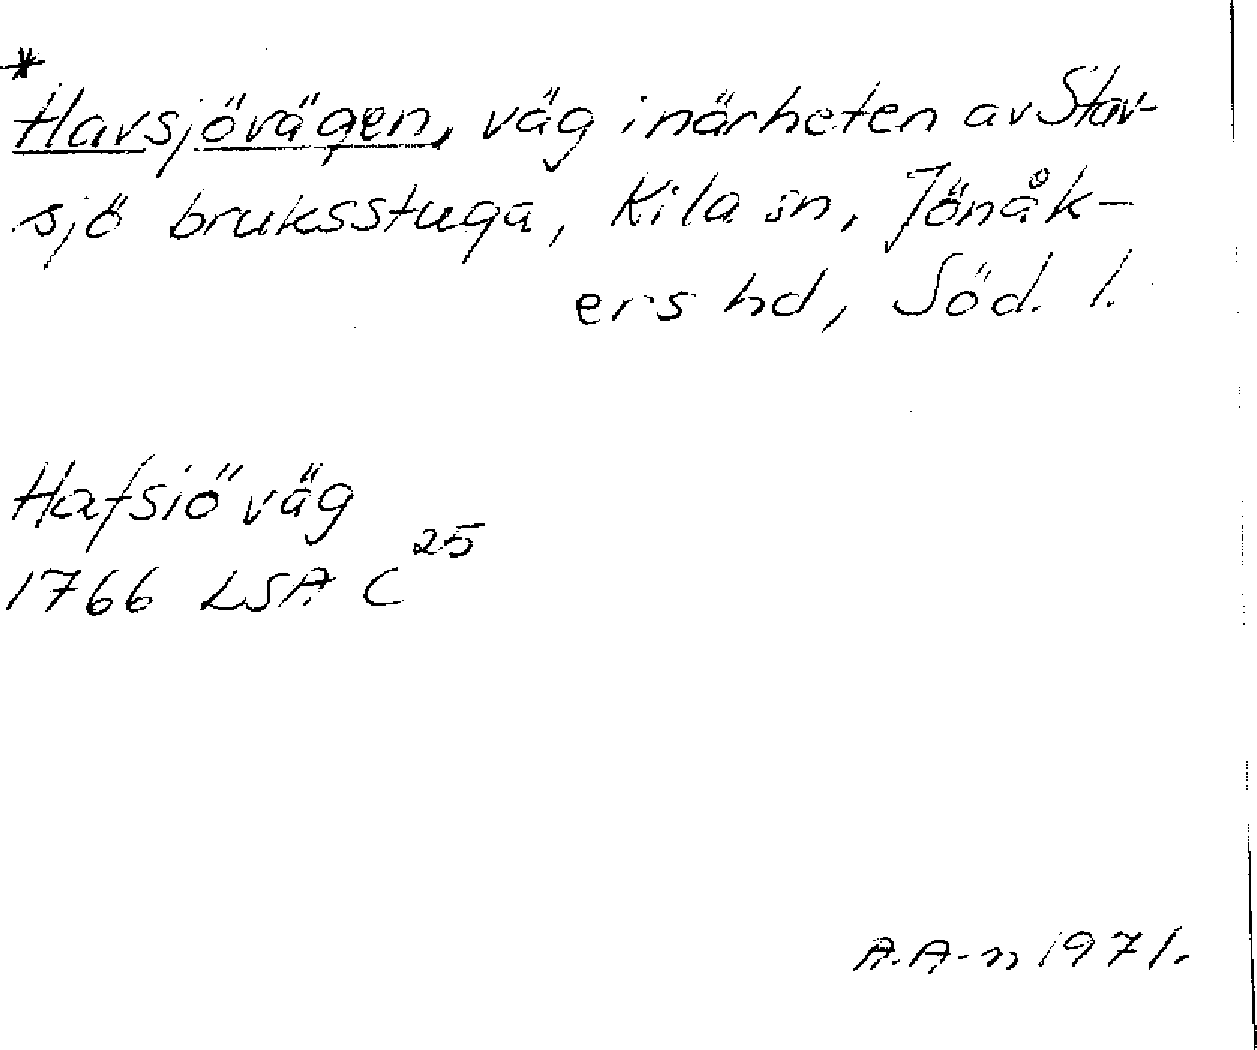 *
Havsjövägen, väg i närheten av Stav-
sjö bruksstuga, Kila sn, Jönåk-
ers hd, Söd. l.
Hafsiö väg
1766 LSA C 25
A.A-n 1971.